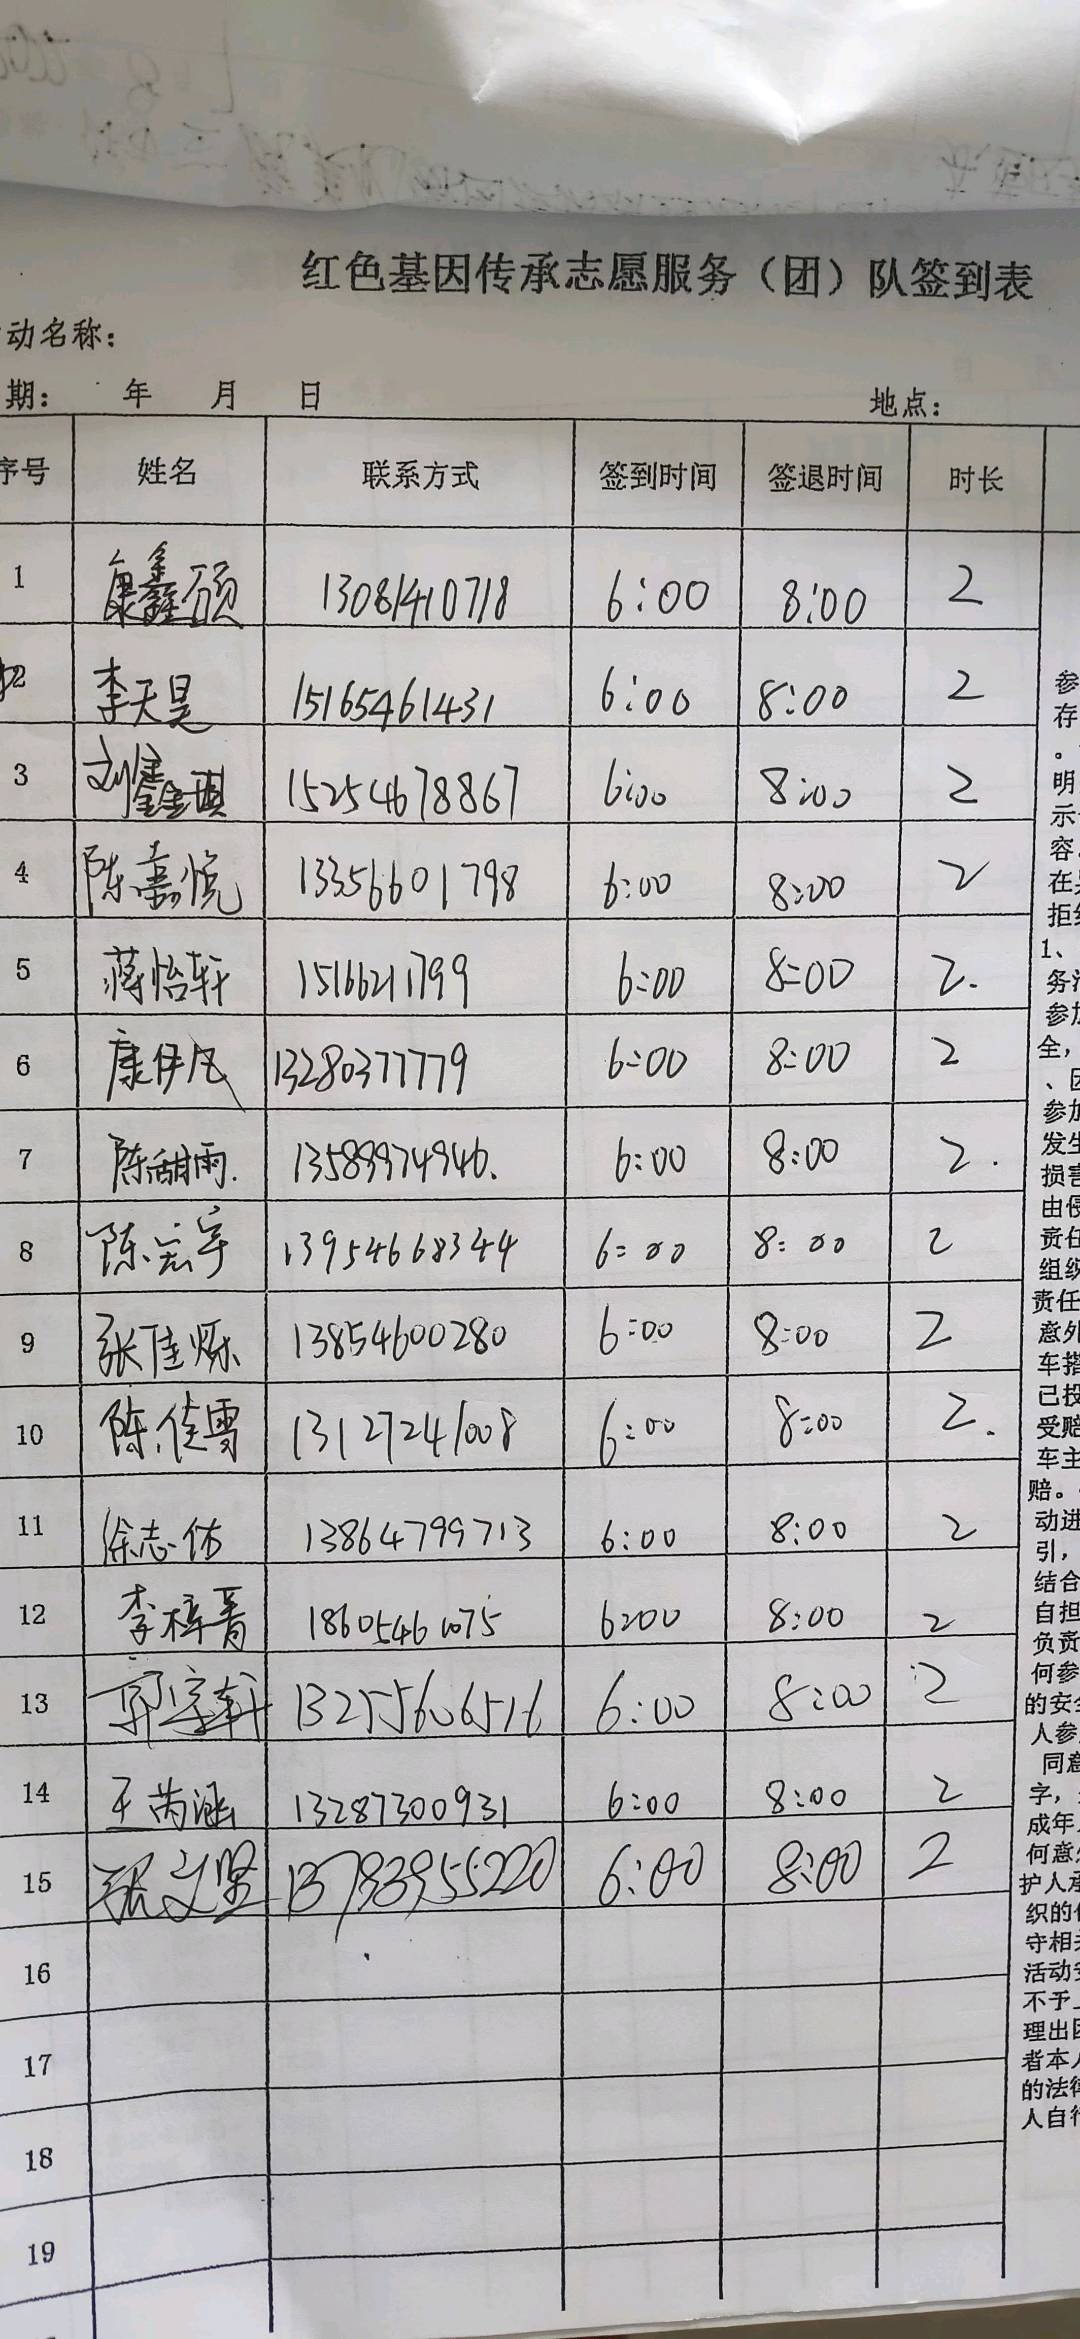 红色基因传承志愿服务（团）队签到表
动名称：
期： 年 月 日 地点：
序号 姓名 联系方式 签到时间 签退时间 时长
1 康鑫硕 13081410718 6:00 8:00 2
2 李天昊 15165461431 6:00 8:00 2
3 刘鑫琪 15254678867 6:00 8:00 2
4 陈嘉悦 13356601798 6:00 8:00 2
5 蒋怡轩 6:00 8:00 2.
6 康伊凡 13280377779 6:00 8:00 2
7 陈甜雨. 13589974946. 6:00 8:00 2.
8 陈宏宇 13954668344 6:00 8:00 2
9 张佳烁 13854600280 6:00 8:00 2
10 陈佳雪 13127241008 6:00 8:00 2.
11 徐志 13864799713 6:00 8:00 2
12 李梓菁 18605461075 6:00 8:00 2
13 郭宗轩 13255606516 6:00 8:00 2
14 王芮涵 13287300931 6:00 8:00 2
15 张文坚 13793955220 6:00 8:00 2
16
17
18
19
参
存
。
明
示
容
在
拒
1、
务
参加
全，
、因
参加
发生
损害
由侵
责任
组织
责任
意外
车搭
已投
受赔
车主
赔。
动进
引，
结合
自担
负责
何参
的安全
人参
同意
字，
成年
何意
护人承
织的
守相关
活动安
不予
理出
者本人
的法律
人自行